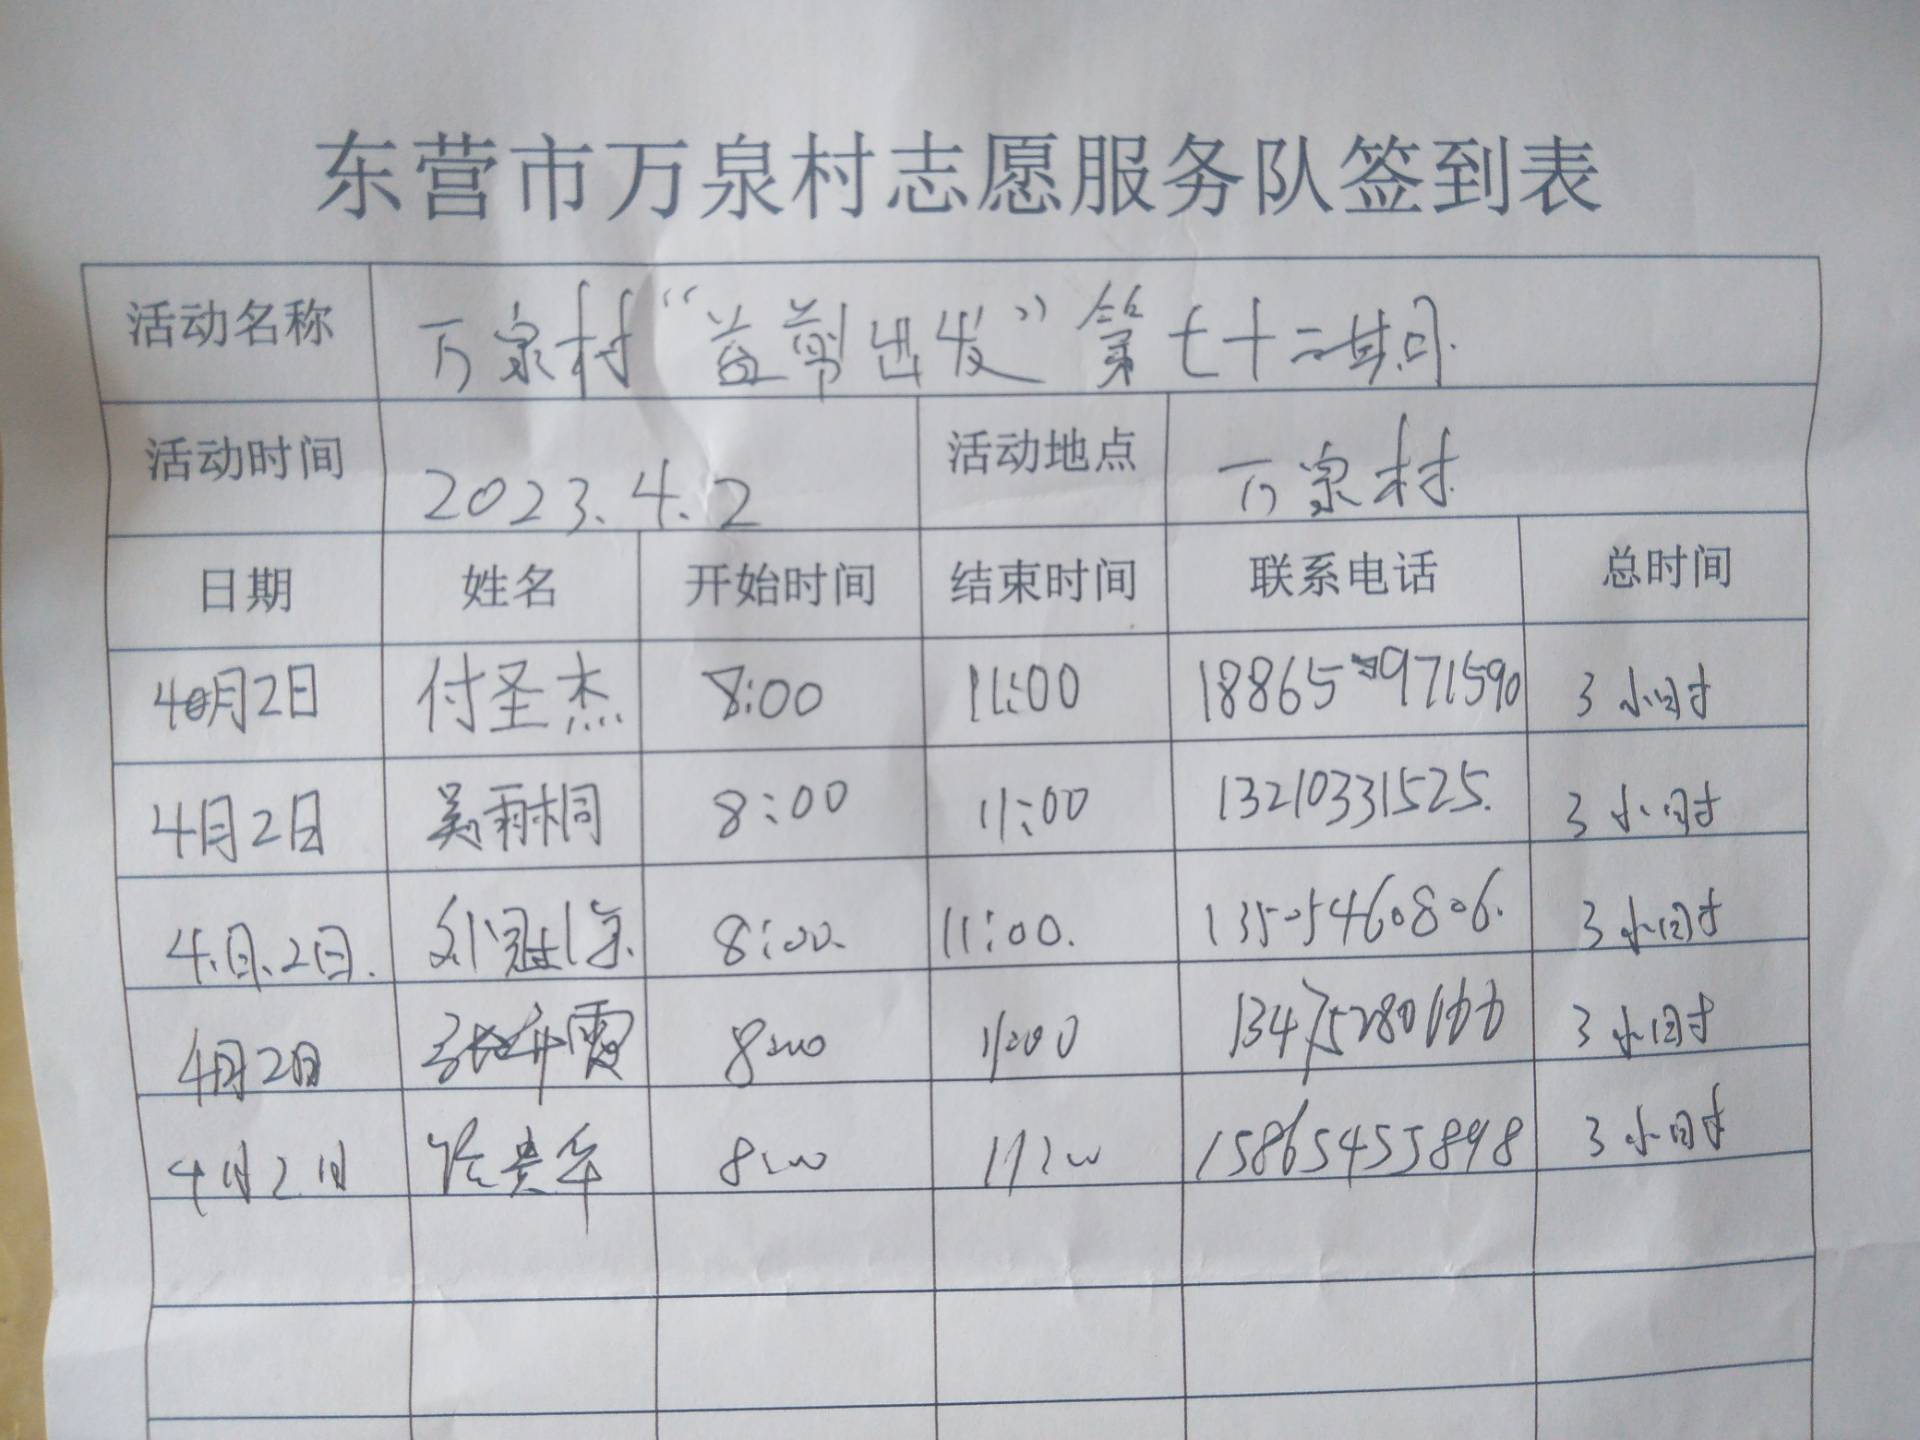 东营市万泉村志愿服务队签到表
活动名称 万泉村“益剪出发”第七十二期
活动时间 2023.4.2 活动地点 万泉村
日期 姓名 开始时间 结束时间 联系电话 总时间
4月2日 付圣杰 8:00 11:00 18865971590 3小时
4月2日 吴雨桐 8:00 11:00 13210331525. 3小时
4.月.2日. 8:00. 11:00. 13505460806. 3小时
4月2日 8:00 11:00 3小时
4月2日 8:00 11:00 15865455898 3小时